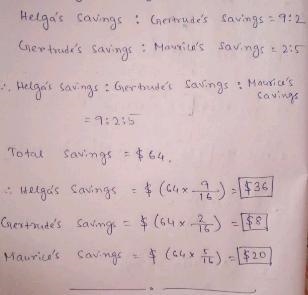 Helga's Savings : Gertrude's Savings = 9:2
Gertrude's Savings : Maurice's Savings = 2:5
∴ Helga's Savings : Gertrude's Savings : Maurice's Savings
= 9:2:5
Total Savings = $ 64.
∴ Helga's Savings = $ (64 × 9/16) = $36
Gertrude's Savings = $ (64 × 2/16) = $8
Maurice's Savings = $ (64 × 5/16) = $20